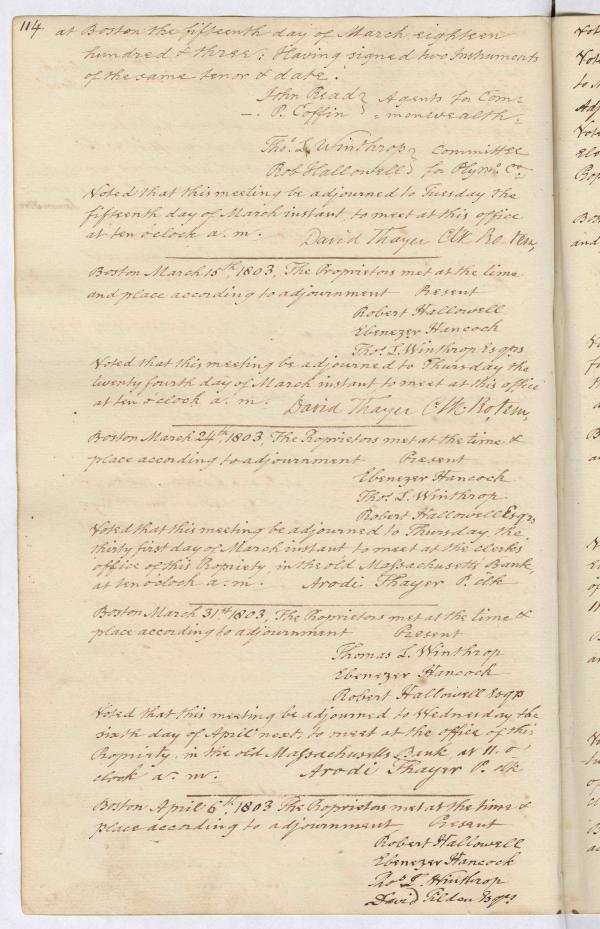 114. at Boston the fifteenth day of March eighteen
hundred & three: Having signed two Instruments
of the same tenor & date.
John Read } Agents for Com=
P. Coffin } =monwealth=
Thos. L. Winthrop } Committee
Rob Hallowell } for Plymo. Co.
Voted that this meeting be adjourned to Tuesday the
fifteenth day of March instant, to meet at this office
at ten o'clock a. m. David Thayer Clk Pro. Tem,
Boston March 15th, 1803, The Proprietors met at the time
and place according to adjournment Present
Robert Hallowell
Ebenezer Hancock
Thos. L. Winthrop Esqrs
Voted that this meeting be adjourned to Thursday the
twenty fourth day of March instant to meet at this office
at ten o'clock a. m. David Thayer Clk Pro, tem,
Boston March 24th, 1803, The Proprietors met at the time &
place according to adjournment Present
Ebenezer Hancock
Thos. L. Winthrop
Robert Hallowell Esqrs
Voted that this meeting be adjourned to Thursday the
thirty first day of March instant to meet at the clerks
office of this Propriety, in the old Massachusetts Bank,
at ten o'clock a. m. Arodi Thayer P. clk
Boston March 31st, 1803, The Proprietors met at the time &
place according to adjournmant Present
Thomas L. Winthrop
Ebenezer Hancock
Robert Hallowell Esqrs
Voted that this meeting be adjourned to Wednesday the
sixth day of April next, to meet at the office of this
Propriety, in the old Massachusetts Bank at 11. o'
clock a. m. Arodi Thayer P. clk
Boston April 6th, 1803 The Proprietors met at the time &
place according to adjournment Present
Robert Hallowell
Ebenezer Hancock
Thos. L. Winthrop
David Tilden Esqrs